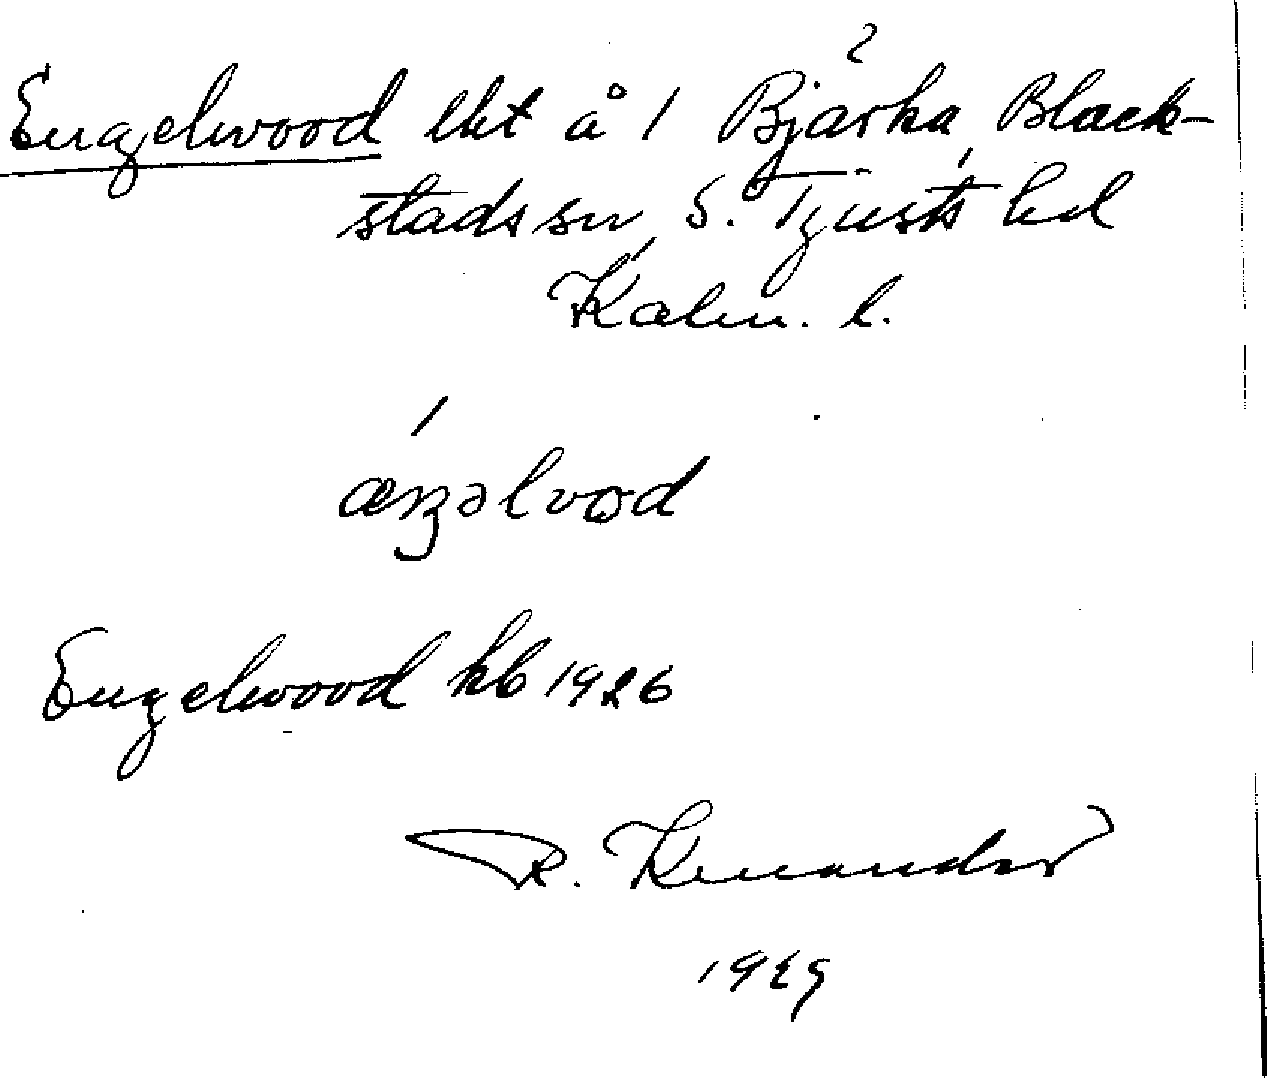 2
Engelwood lht å 1 Bjärka, Black-
stads sn, S. Tjusts hd
Kalm. l.
æŋəlvod
Engelwood kb 1926
R.
1929